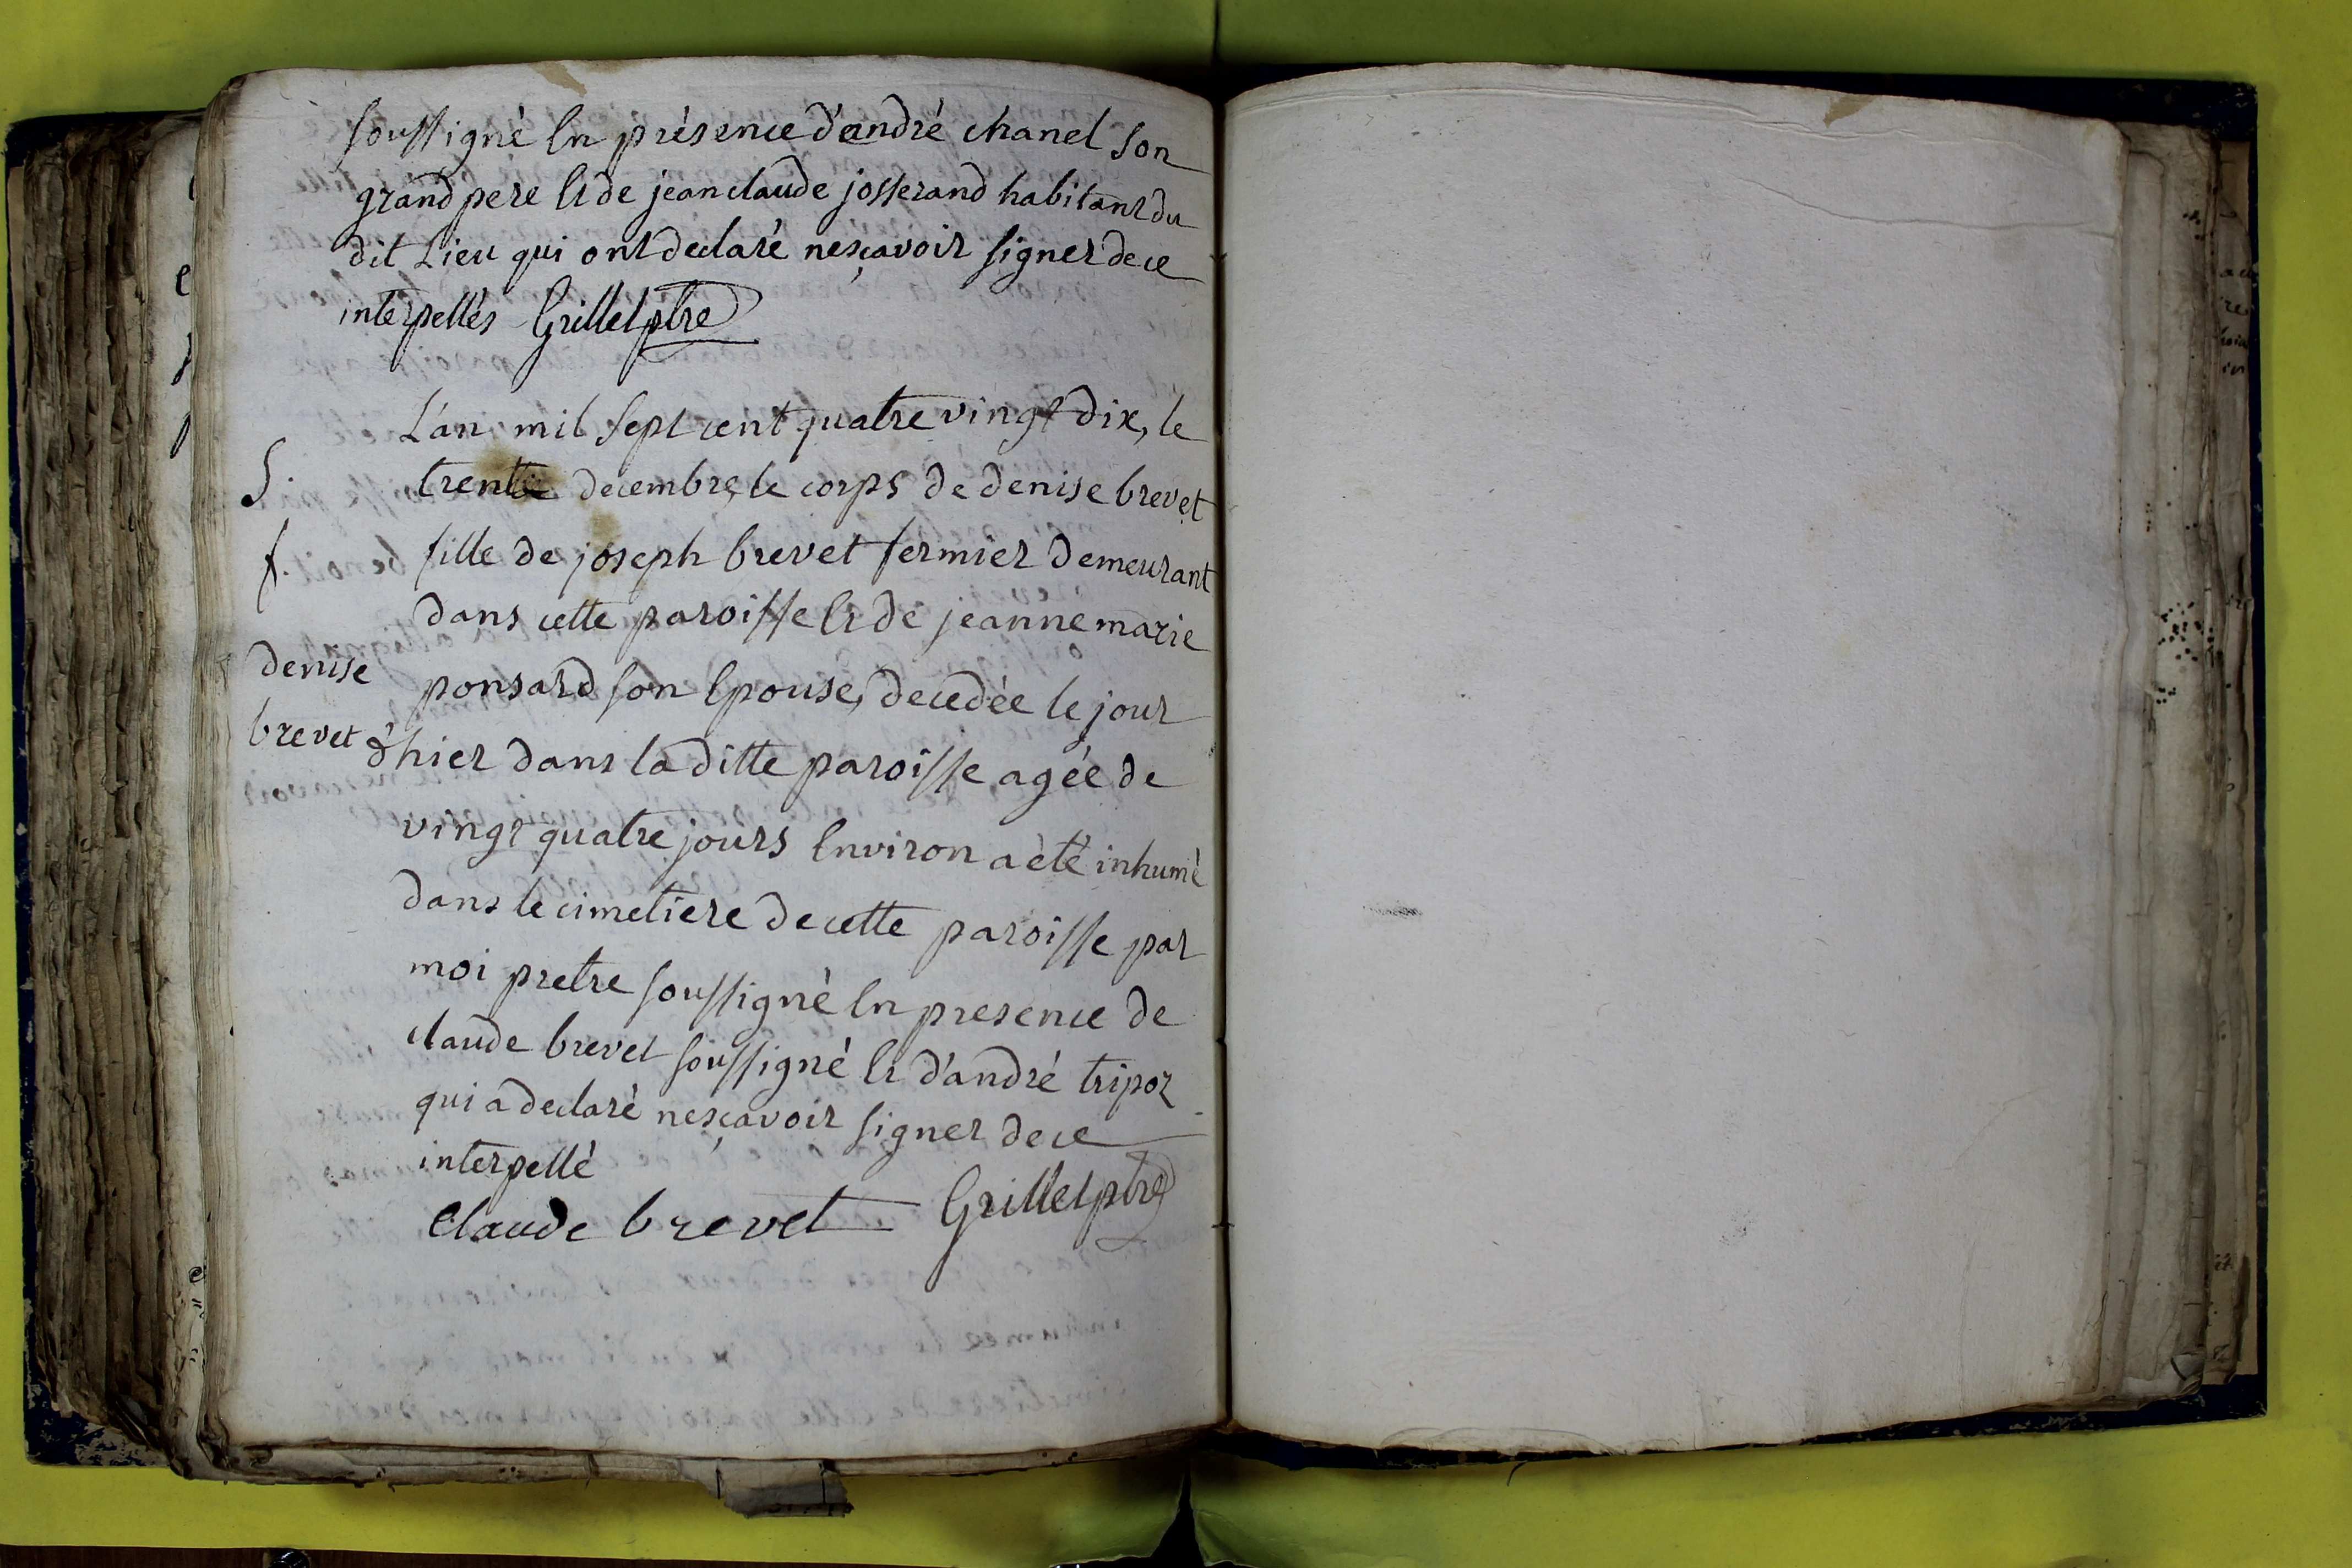 soussigné en présence d'andré chanel son
grand pere et de jean claude josserand habitant du
dit Lieu qui ont declaré nesçavoir signer de ce
interpellés Grillet ptre
L'an mil sept cent quatre vingt dix, le
trente decembre, le corps de denise brevet
fille de joseph brevet fermier demeurant
dans cette paroisse et de jeanne marie
ponsard son epouse, decedée le jour
d'hier dans la ditte paroisse agée de
vingt quatre jours environ a été inhumé
dans le cimetiere de cette paroisse par
moi pretre soussigné en presence de
claude brevet soussigné et d'andré tripoz
qui a declaré nesçavoir signer de ce
interpellé
Claude brevet Grillet ptre
S.
f.
denise
brevet